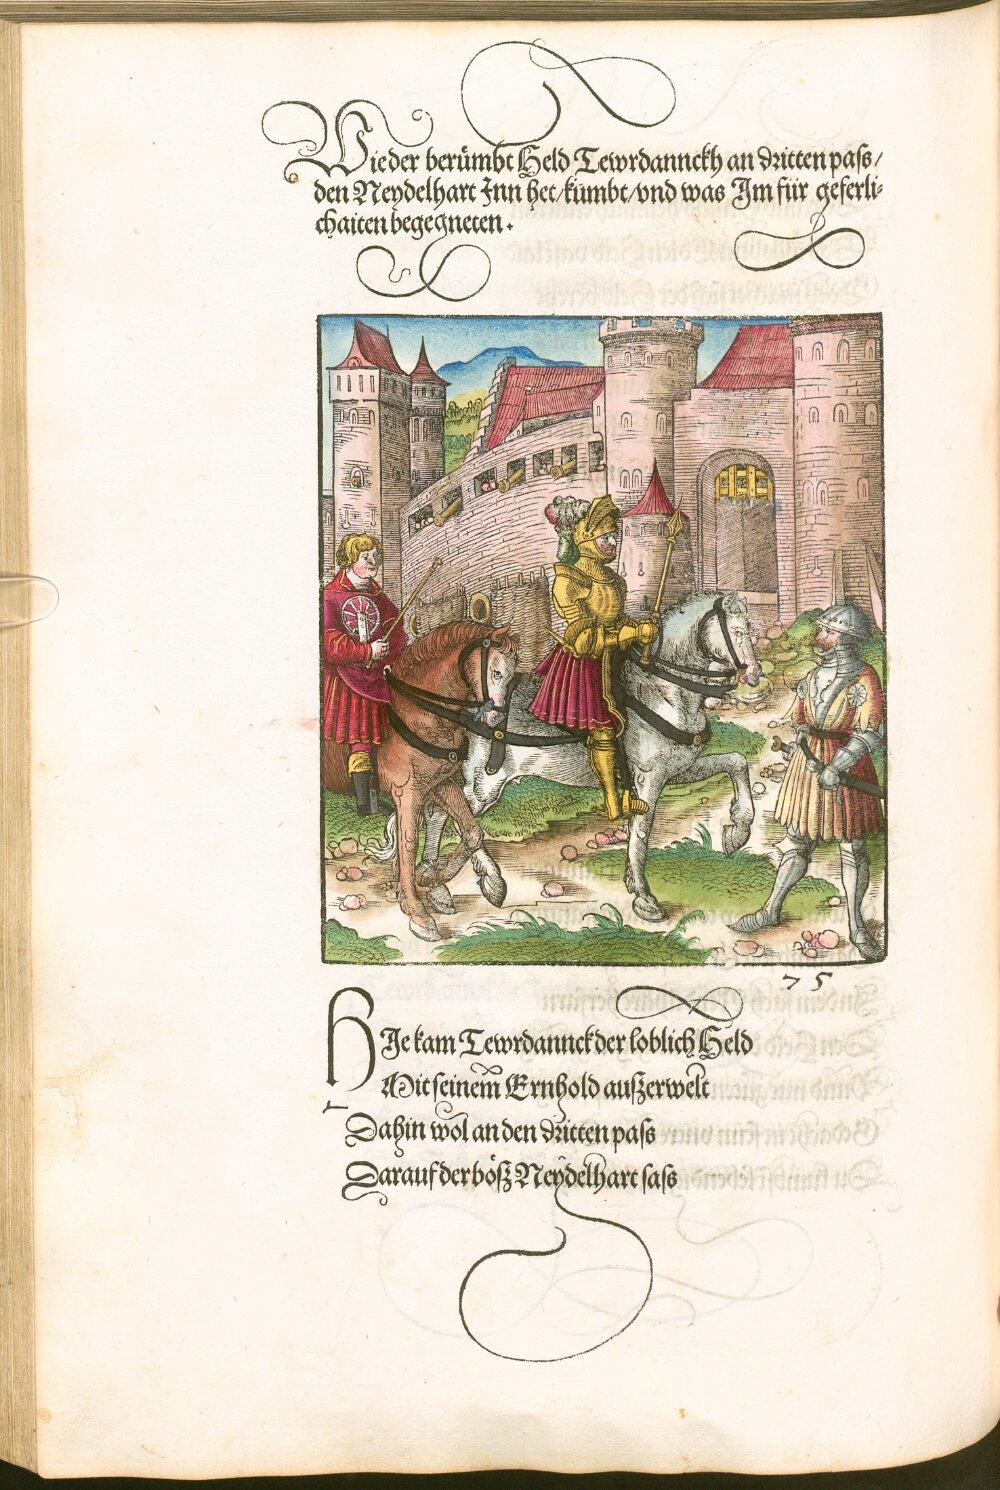 Wie der berümbt Held Tewrdannckh an dritten pass/
den Neydelhart Inn het/kümbt/vnd was Im für geferli-
chaiten begegneten.
75
HIe kam Tewrdannck der loblich Held
Mit seinem Ernhold auszerwelt
Dahin wol an den dritten pass
Darauf der bösz Neydelhart sass